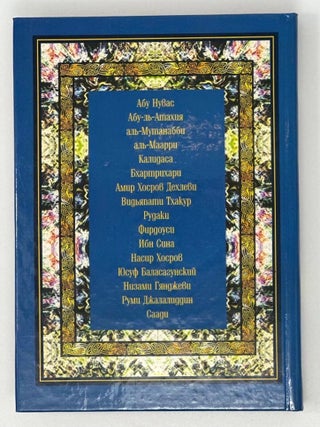 Абу Нувас
Абу-ль-Атахия
аль-Мутанабби
аль-Маарри
Калидаса
Бхартрихари
Амир Хосров Дехлеви
Видьяпати Тхакур
Рудаки
Фирдоуси
Ибн Сина
Насир Хосров
Юсуф Баласагунский
Низами Гянджеви
Руми Джалалиддин
Саади